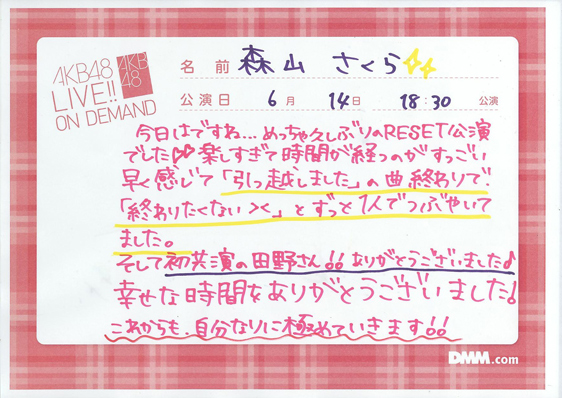 AKB48
LIVE!!
ON DEMAND
AKB
48
名 前 森山 さくら
公演日 6月 14日 18:30 公演
今日はですね…めっちゃ久しぶりのRESET公演
でした♡♡楽しすぎて時間が経つのがすっごい
早く感じて「引っ越しました」の曲終わりで
「終わりたくない><」とずっと1人でつぶやいて
ました。
そして初共演の田野さん!!ありがとうございました♪
幸せな時間をありがとうございました!
これからも、自分なりに極めていきます!!
DMM.com